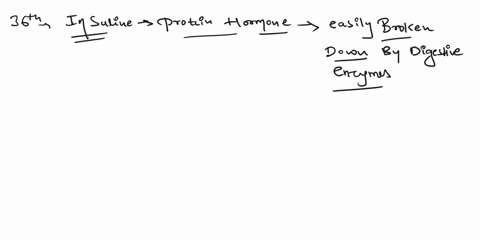 36th, InSuline → protein Hormone → easily Broken
Down By Digestive
Enzymes